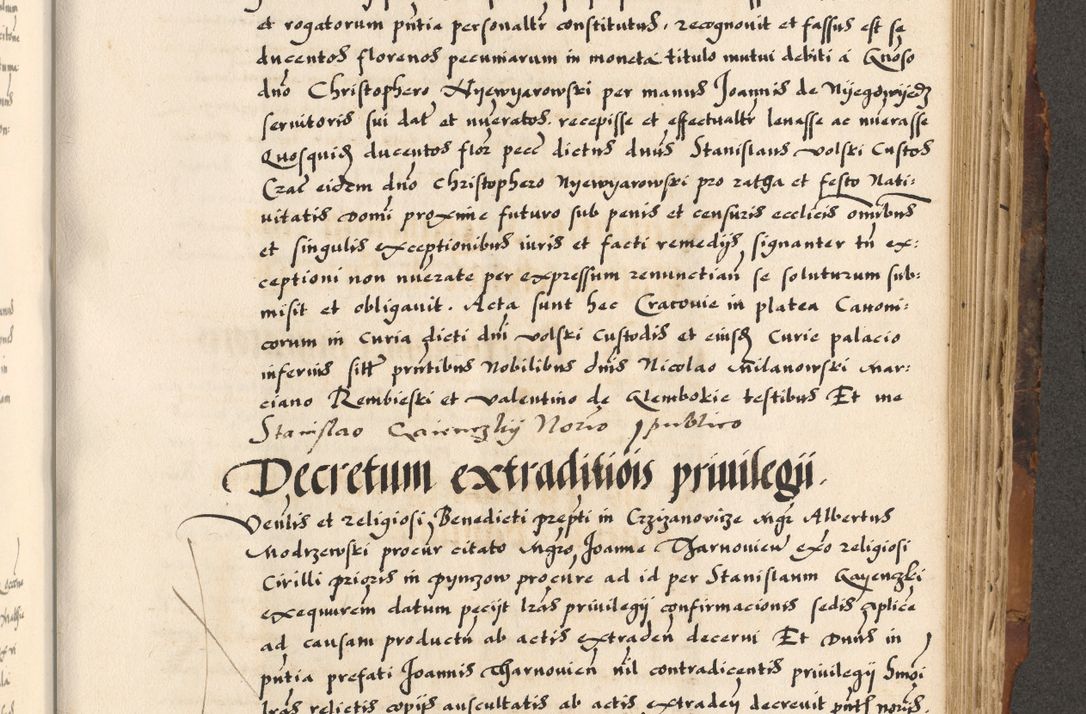 et rogatorum pñtia personaltr constitutus, recognovit et fassus est se
ducentos florenos pecuniarum in moneta titulo mutui debiti a Gnoso
dno Christophero Nyewyarowski per manus Joannis de Nyegowyedz
servitoris sui dat et nũeratos. recepisse et effectualtr levasse ac nũerasse
Quosquid ducentos flor pecc dictus dnus Stanislaus Volski Custos
Crac eidem dno Christophero Nyewyarowski pro ratha et festo Nati:
vitatis Domi proxime futuro sub penis et censuris ecclicis omibus
et singulis exceptionibus iuris et facti remedys, signanter tñ ex:
ceptioni non nũerate per expressum renunctiañ se soluturum sub:
misit et obligavit. Acta sunt hec Cracovie in platea Canoni:
corum in Curia dicti dni Volski Custodis et eiusd Curie palacio
inferius sitt prntibus Nobilibus dnis Nicolao Milanowski Mar:
ciano Rembieski et Valentino de Glembokie testibus Et me
Stanislao Gaienczkij Norio publico
Decretum extraditiõis privilegii.
Venlis et religiosi Benedicti prepti in Crzizanovicze Mgr Albertus
Modrzewski procur citato Mgro Joanne Tharnovien exo religiosi
Cirilli prioris in Pynczow procure ad id per Stanislaum Gayenczki
exequurem datum pecijt lras privilegy confirmacionis sedis Aplice
ad causam productũ ab actis extraden decerni Et Dnus in
pñtia prefati Joannis Tharnovien nil contradicentis privilegy Smoi
lras relictis copijs auscultatis ab actis extraden decrevit pñtt noris.